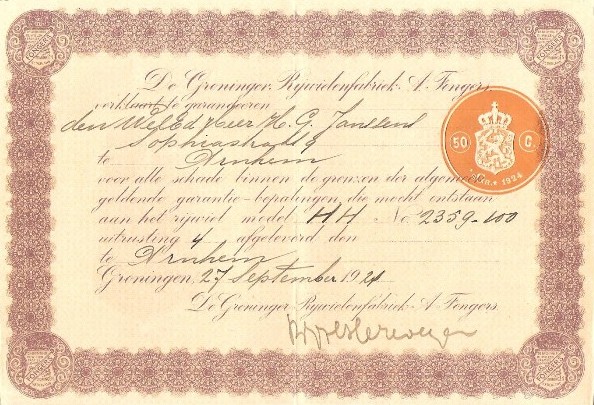 De Groninger Rijwielenfabriek A. Fongers
verklaart te garandeeren
den WelEd Heer H. G. Janssens
te Arnhem
voor alle schade binnen de grenzen der algemeen
geldende garantie-bepalingen die mocht ontstaan
aan het rijwiel model HH No 2359-100
uitrusting 4 afgeleverd den
te Arnhem
Groningen, 27 September 1924
De Groninger Rijwielenfabriek A. Fongers
50 C.
1924
FONGERS
FONGERS
FONGERS
FONGERS